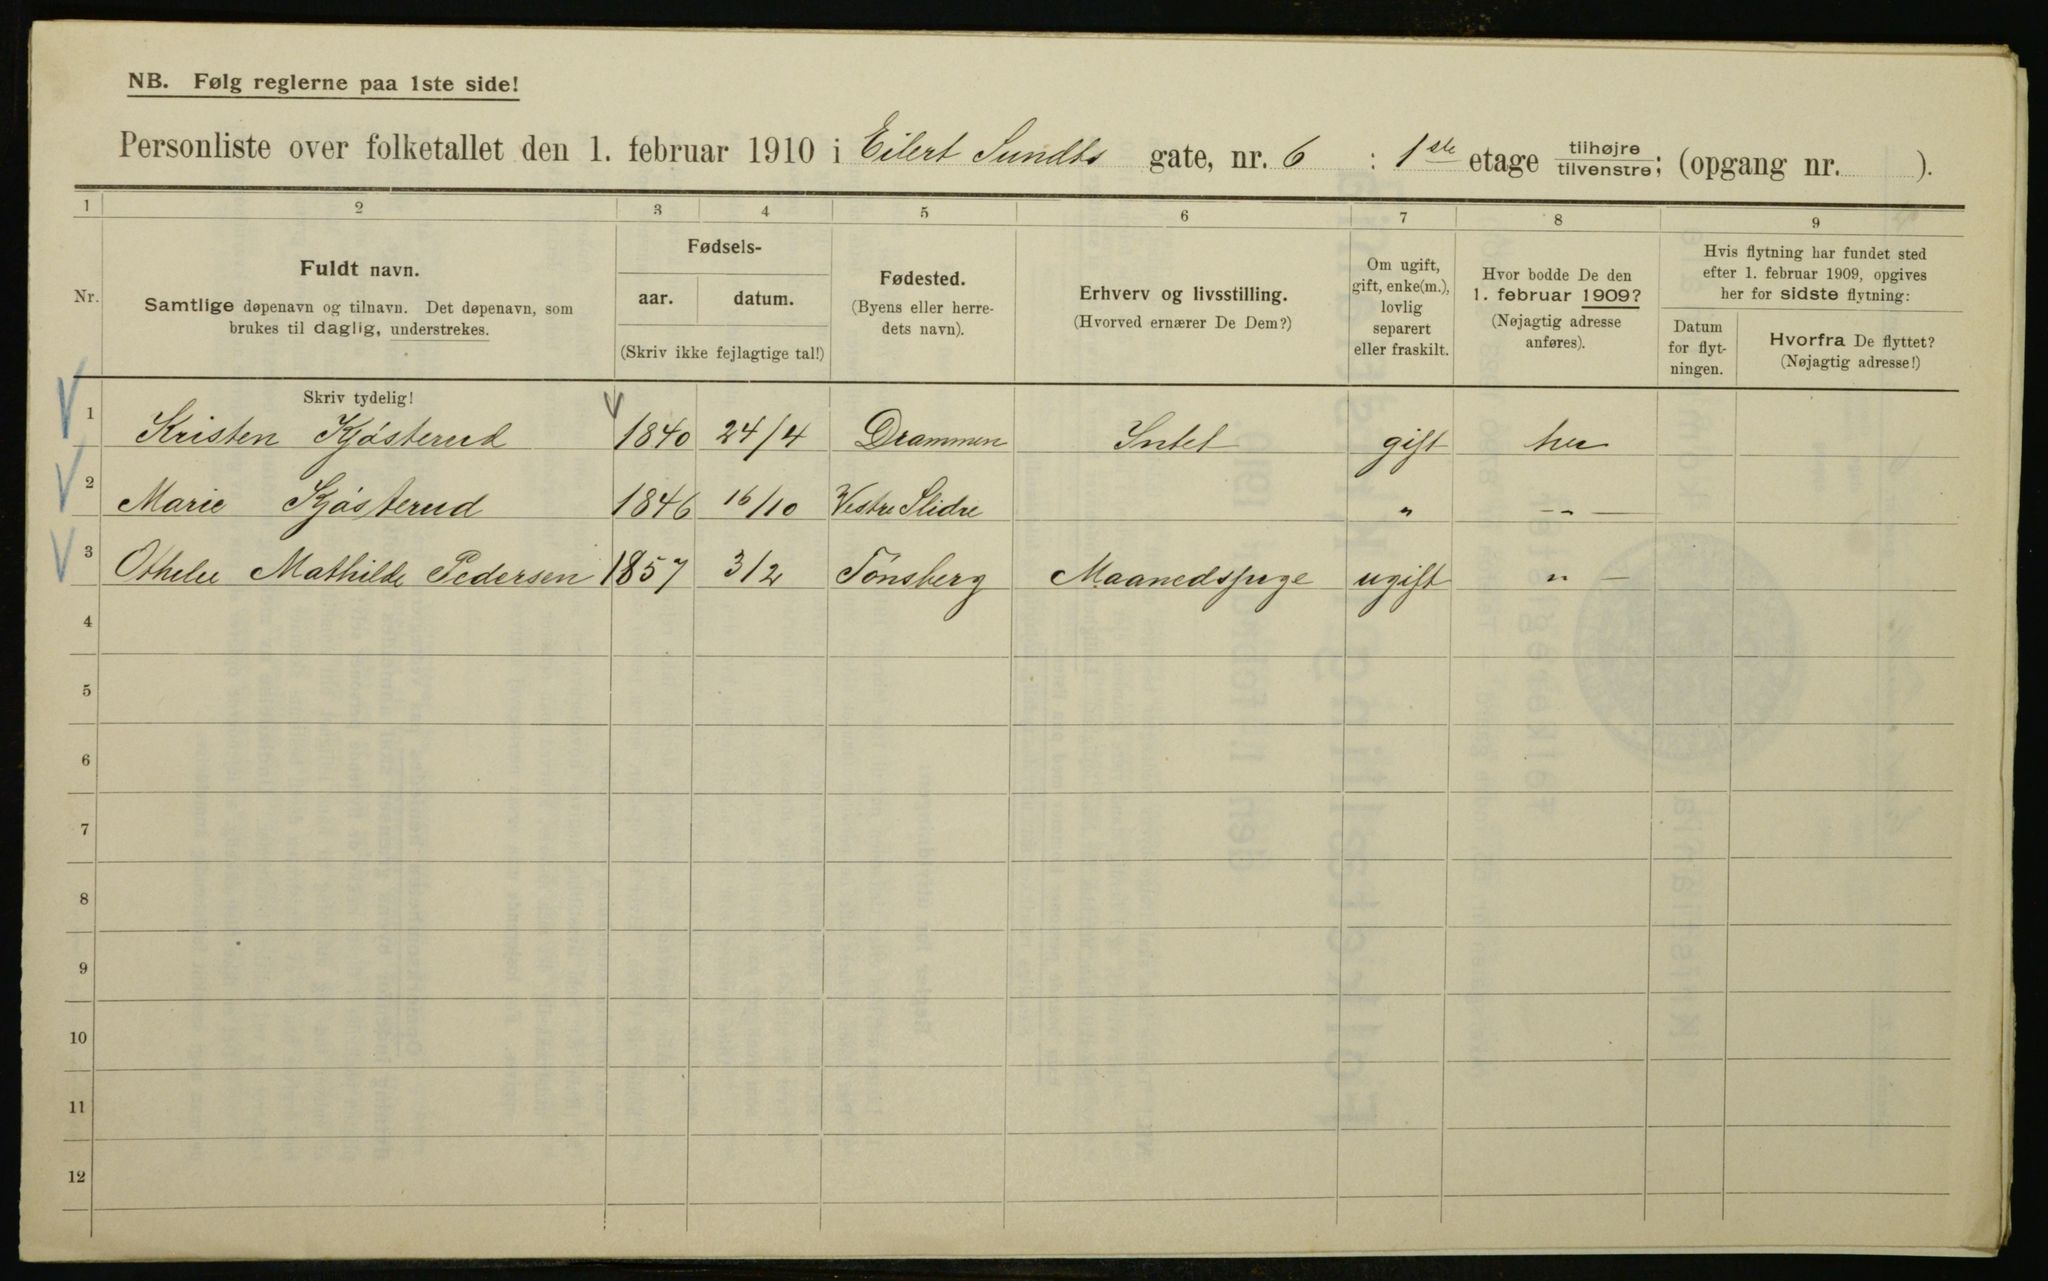 NB. Følg reglerne paa 1ste side!
Personliste over folketallet den 1. februar 1910 i Eilert Sundts gate, nr. 6 : 1ste etage tilhøjre/tilvenstre; (opgang nr. ).
1 2 3 4 5 6 7 8 9
Nr.
Fuldt navn.
Samtlige døpenavn og tilnavn. Det døpenavn, som
brukes til daglig, understrekes.
Fødsels-
aar. datum.
(Skriv ikke fejlagtige tal!)
Fødested.
(Byens eller herre-
dets navn).
Erhverv og livsstilling.
(Hvorved ernærer De Dem?)
Om ugift,
gift, enke(m.),
lovlig
separert
eller fraskilt.
Hvor bodde De den
1. februar 1909?
(Nøjagtig adresse
anføres).
Hvis flytning har fundet sted
efter 1. februar 1909, opgives
her for sidste flytning:
Datum
for flyt-
ningen.
Hvorfra De flyttet?
(Nøjagtig adresse!)
Skriv tydelig!
1 Kristen Kjøsterud 1840 24/4 Drammen Intet gift her
2 Marie Kjøsterud 1846 16/10 Vestre Slidre " - " -
3 Mathilde Pedersen 1857 3/2 Tønsberg Maanedspige ugift " -
4
5
6
7
8
9
10
11
12